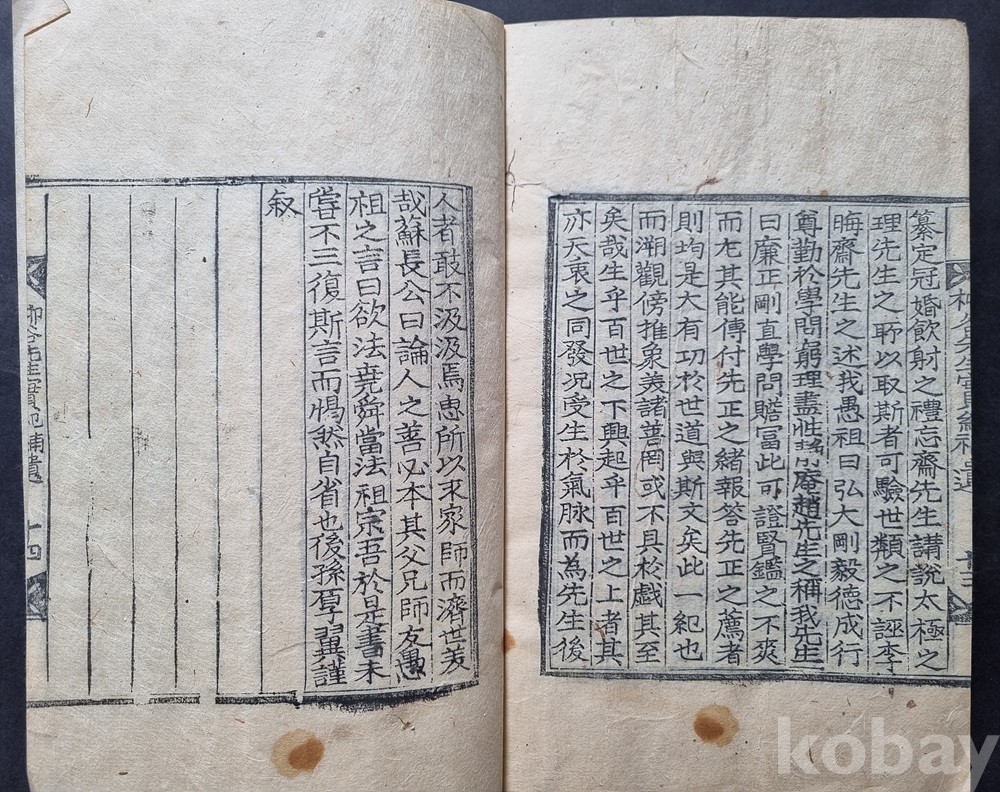 纂定冠婚飲射之禮忘齋先生講說太極之
理先生之所以取斯者可驗世類之不誣李
晦齋先生之述我愚祖曰弘大剛毅德成行
尊勤於學問窮理盡性 庵趙先生之稱我先生
曰廉正剛直學問贍富此可證賢鑑之不爽
而尤其能傳付先正之緒報答先正之薦者
則均是大有功於世道與斯文矣此一紀也
而溯觀傍推象羡諸普罔或不具於戲其至
矣哉生乎百世之下興起乎百世之上者其
亦天衷之同發況受生於氣脉而為先生後
先生實紀補遺
十三
人者敢不汲汲焉思所以求家師而濟世羡
哉蘇長公曰論人之善必本其父兄師友愚
祖之言曰欲法堯舜當法祖宗吾於是書未
嘗不三復斯言而惕然自省也後孫 翼謹
叙
先生實紀補遺
十四
kobay